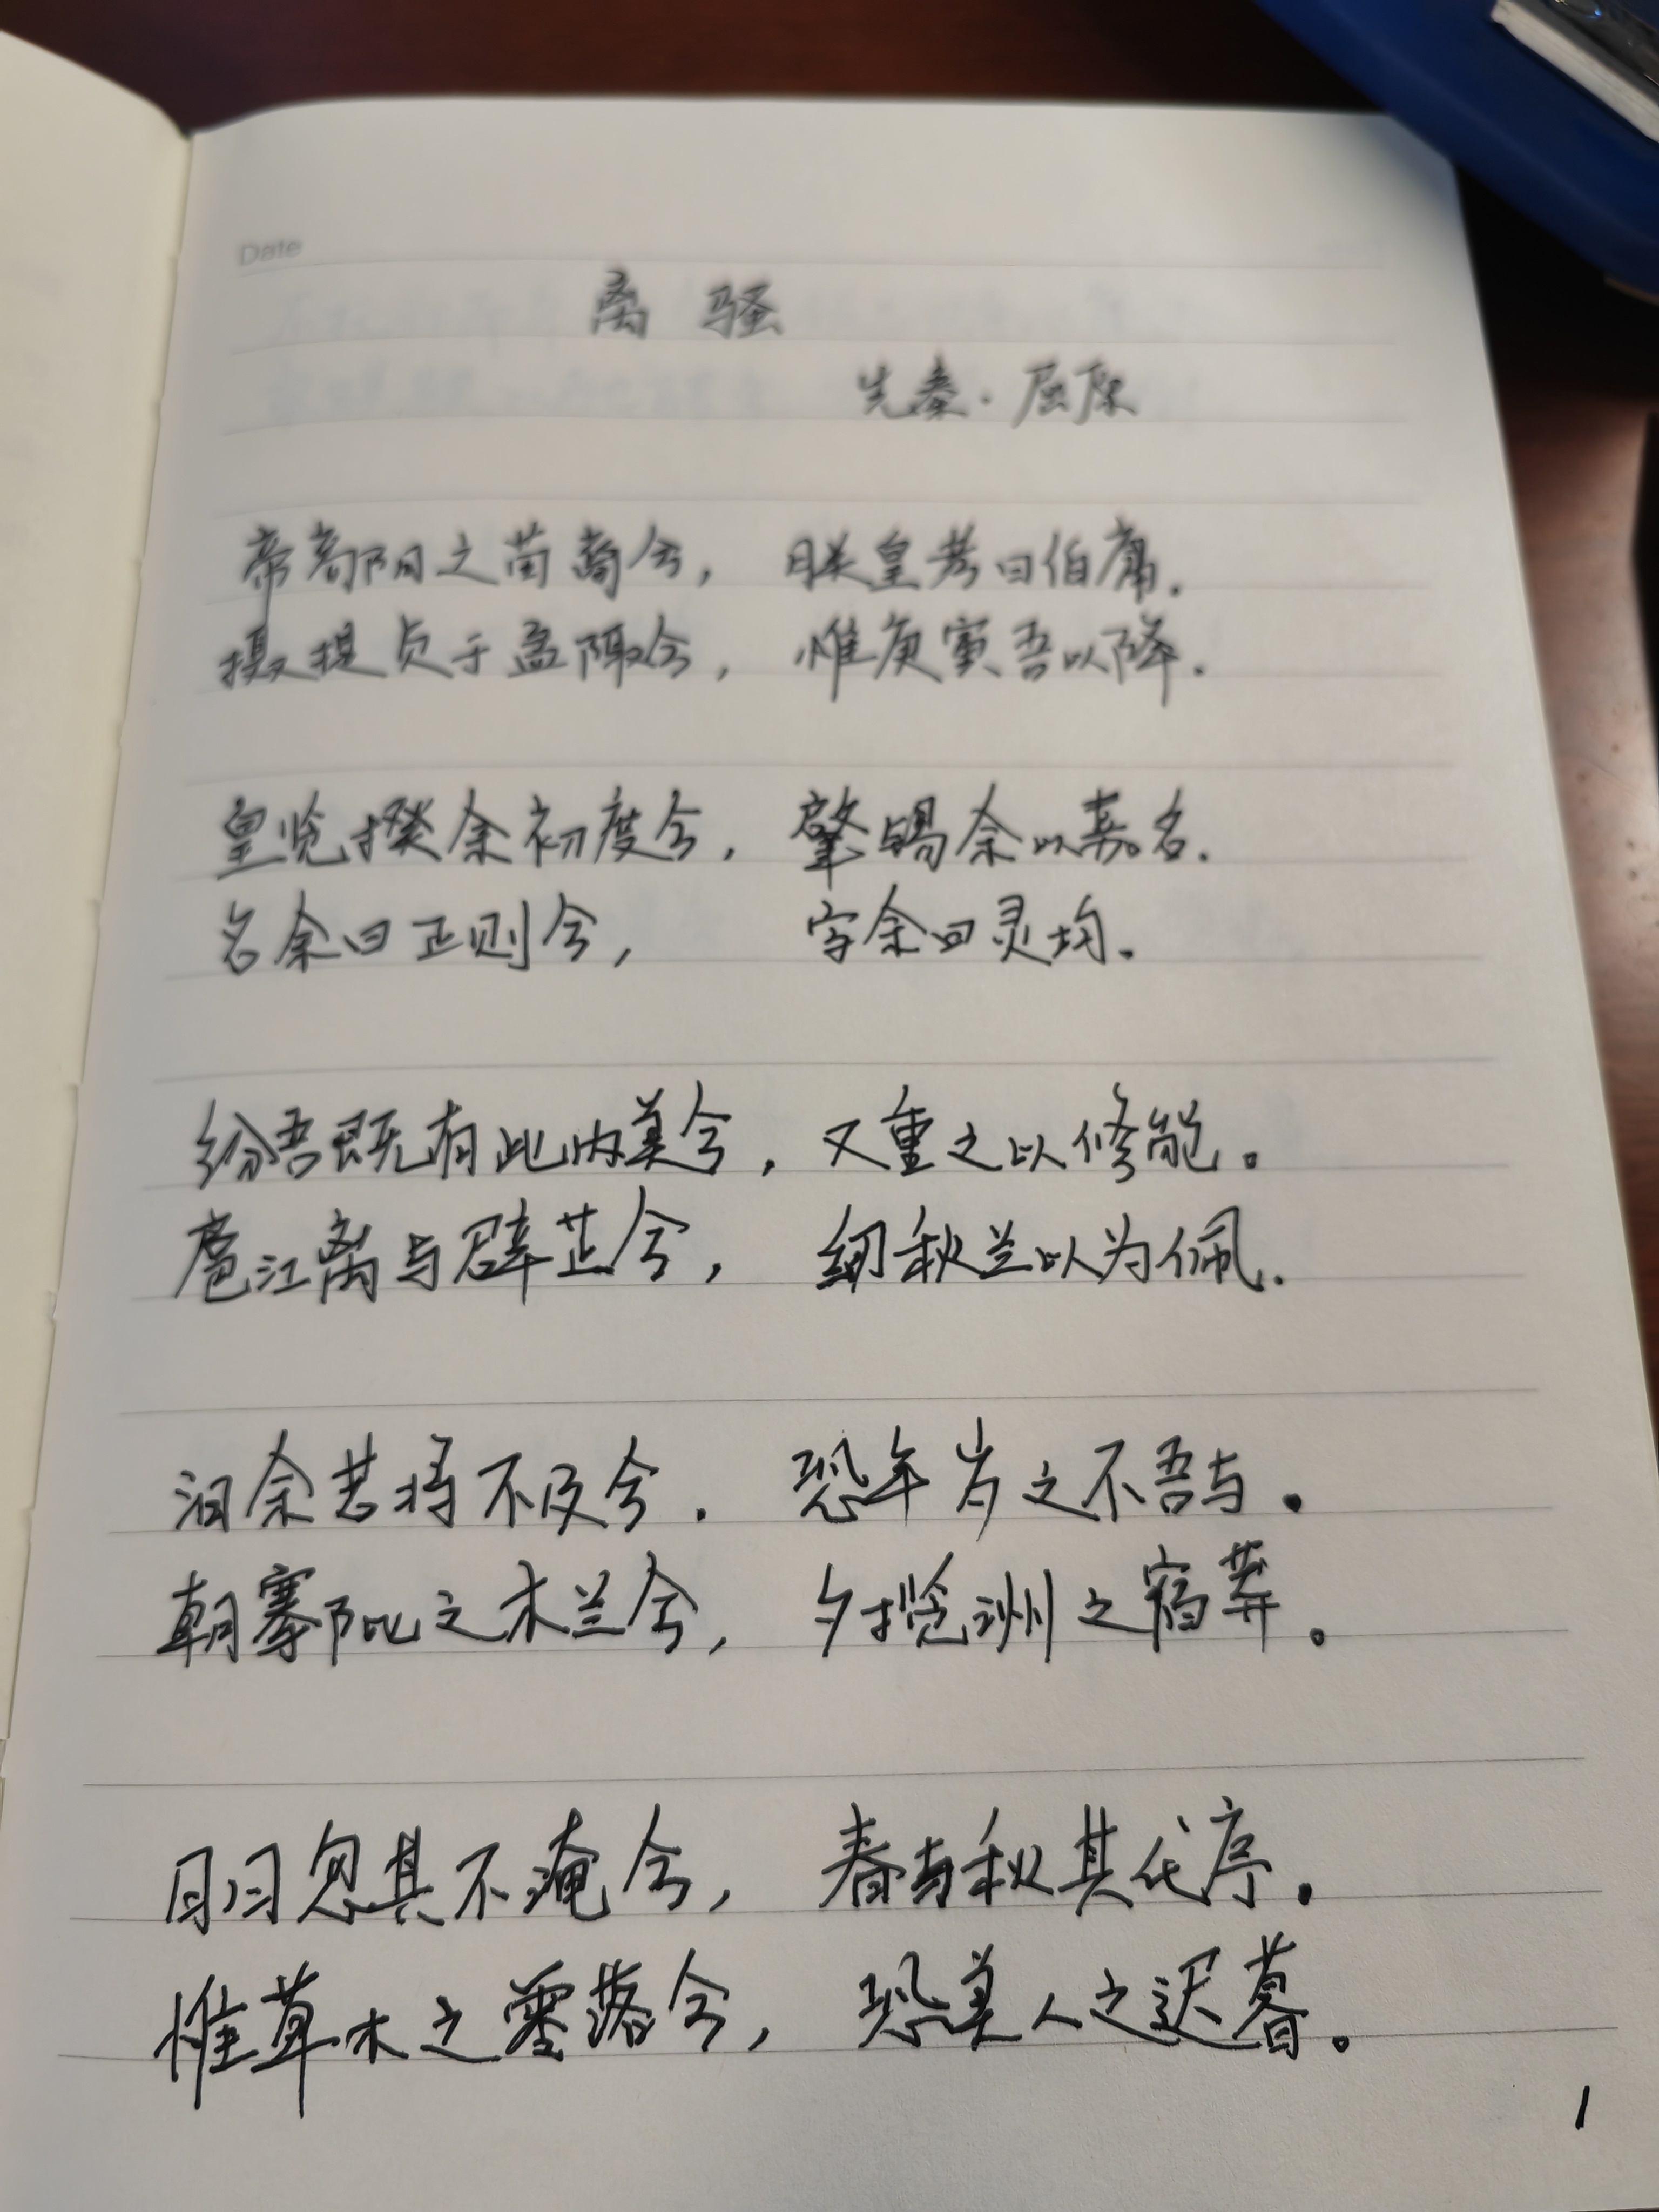 Date
离骚
先秦·屈原
帝高阳之苗裔兮，朕皇考曰伯庸.
摄提贞于孟陬兮，惟庚寅吾以降.
皇览揆余初度兮，肇锡余以嘉名.
名余曰正则兮，字余曰灵均.
纷吾既有此内美兮，又重之以修能。
扈江离与辟芷兮，纫秋兰以为佩.
汩余若将不及兮.恐年岁之不吾与.
朝搴阰之木兰兮，夕揽洲之宿莽。
日月忽其不淹兮，春与秋其代序.
惟草木之零落兮，恐美人之迟暮。
1